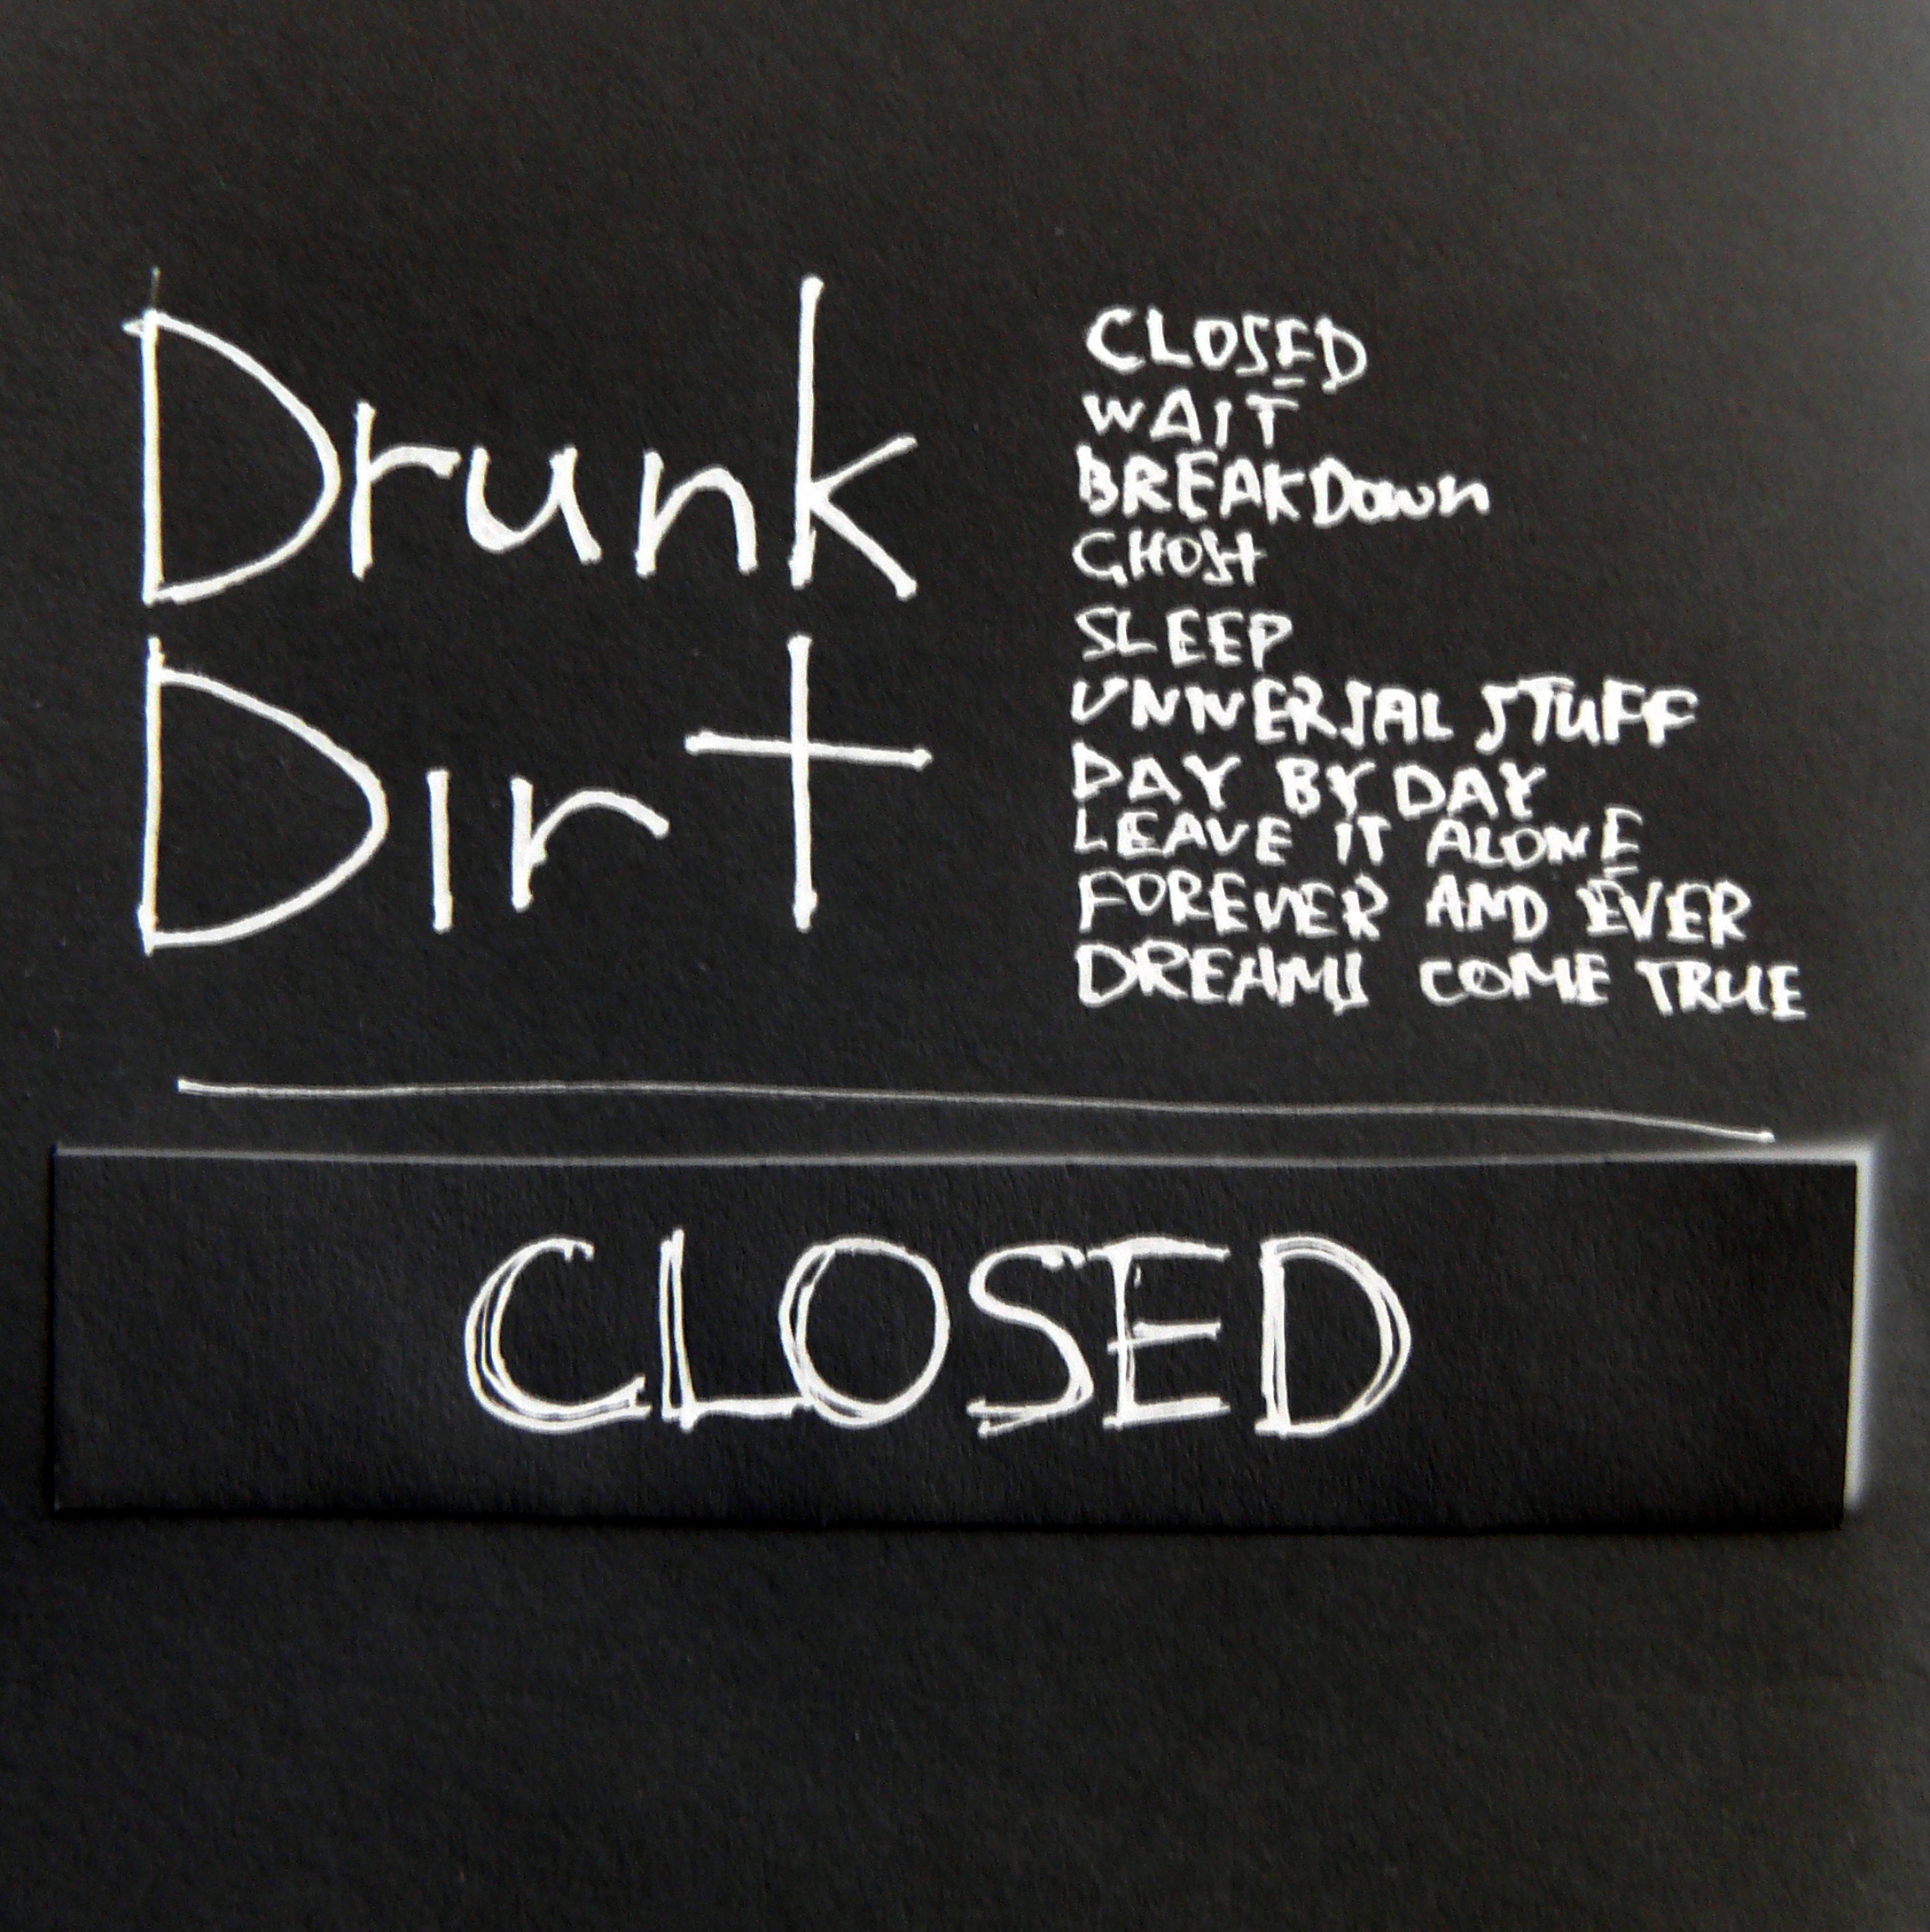 Drunk
Dirt
CLOSED
WAIT
BREAKDown
GHOSt
SLEEP
UNIVERSAL STUFF
DAY BY DAY
LEAVE IT ALONE
FOREVER AND EVER
DREAMS COME TRUE
CLOSED